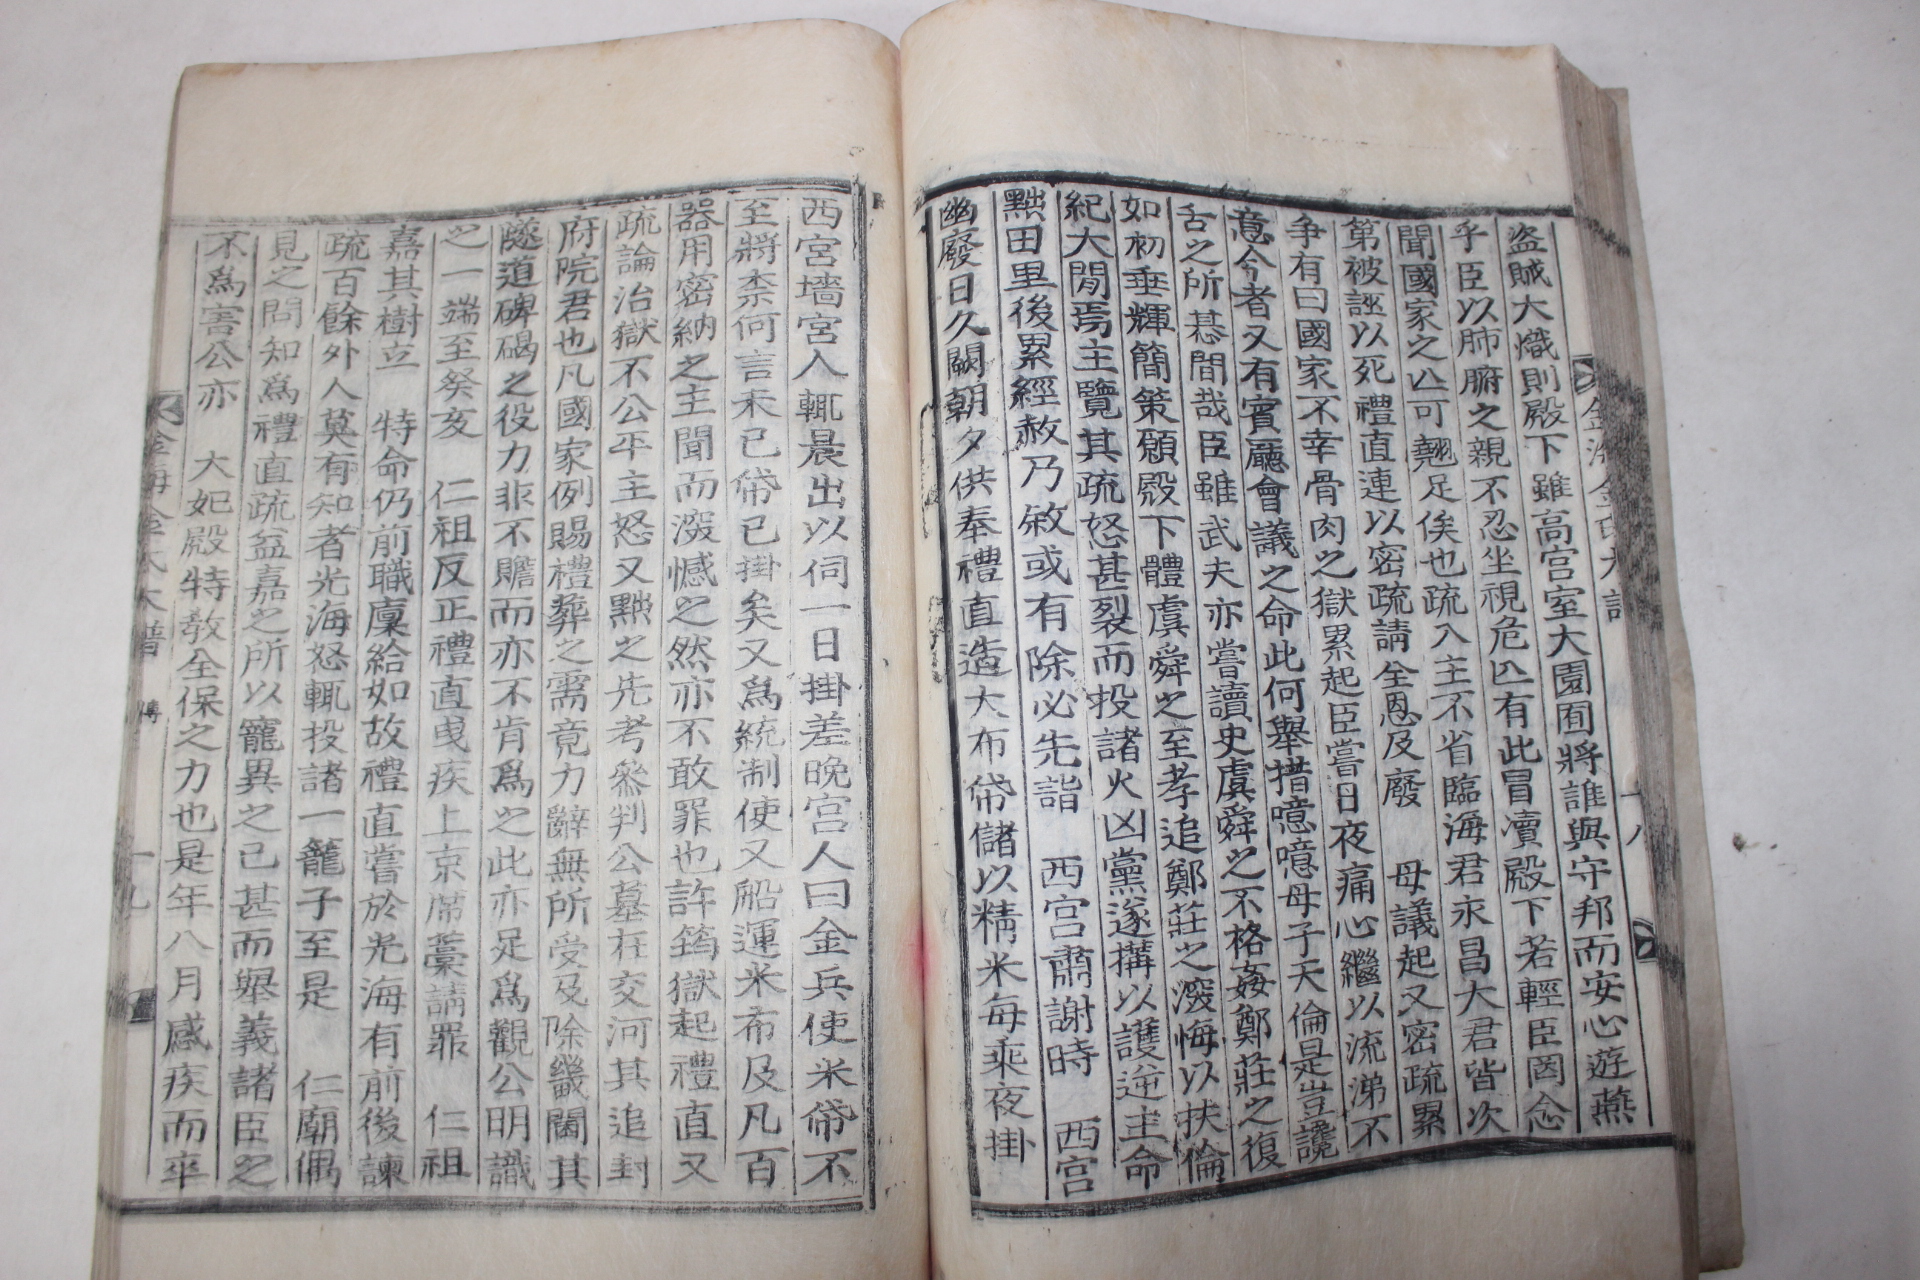 盜賊大熾則殿下雖高宮室大園囿將誰與守邦而安心遊燕
乎臣以肺腑之親不忍坐視危亾有此冒瀆殿下若輕臣罔念
聞國家之亾可翹足俟也疏入主不省臨海君永昌大君皆次
第被誣以死禮直連以密疏請 全恩及廢 母議起又密疏累
爭有曰國家不幸骨肉之獄累起臣嘗日夜痛心繼以流涕不
意今者又有賓廳會議之命此何擧措噫噫母子天倫是豈讒
舌之所惎間哉臣雖武夫亦嘗讀史虞舜之不格姦鄭莊之復
如初垂輝簡策願殿下體虞舜之至孝追鄭莊之深悔以扶倫
紀大閒焉主覽其疏怒甚裂而投諸火凶黨遂搆以護逆主命
黜田里後累經赦乃敘或有除必先詣 西宮肅謝時 西宮
幽廢日久闕朝夕供奉禮直造大布帒儲以精米每乘夜掛
西宮墻宮人輒晨出以伺一日掛差晚宮人曰金兵使米帒不
至將柰何言未已帒已掛矣又爲統制使又船運米布及凡百
器用密納之主聞而深憾之然亦不敢罪也許筠獄起禮直又
疏論治獄不公平主怒又黜之先考參判公墓在交河其追封
府院君也凡國家例賜禮葬之需竟力辭無所受及除畿閫其
隧道碑碣之役力非不贍而亦不肯爲之此亦足爲觀公明識
之一端至癸亥 仁祖反正禮直曳疾上京席藁請罪 仁祖
嘉其樹立 特命仍前職廩給如故禮直嘗於光海有前後諫
疏百餘外人莫有知者光海怒輒投諸一籠子至是 仁廟偶
見之問知爲禮直疏益嘉之所以寵異之已甚而擧義諸臣之
不爲害公亦 大妃殿特敎全保之力也是年八月感疾而卒
金海金氏大譜 傳 十九